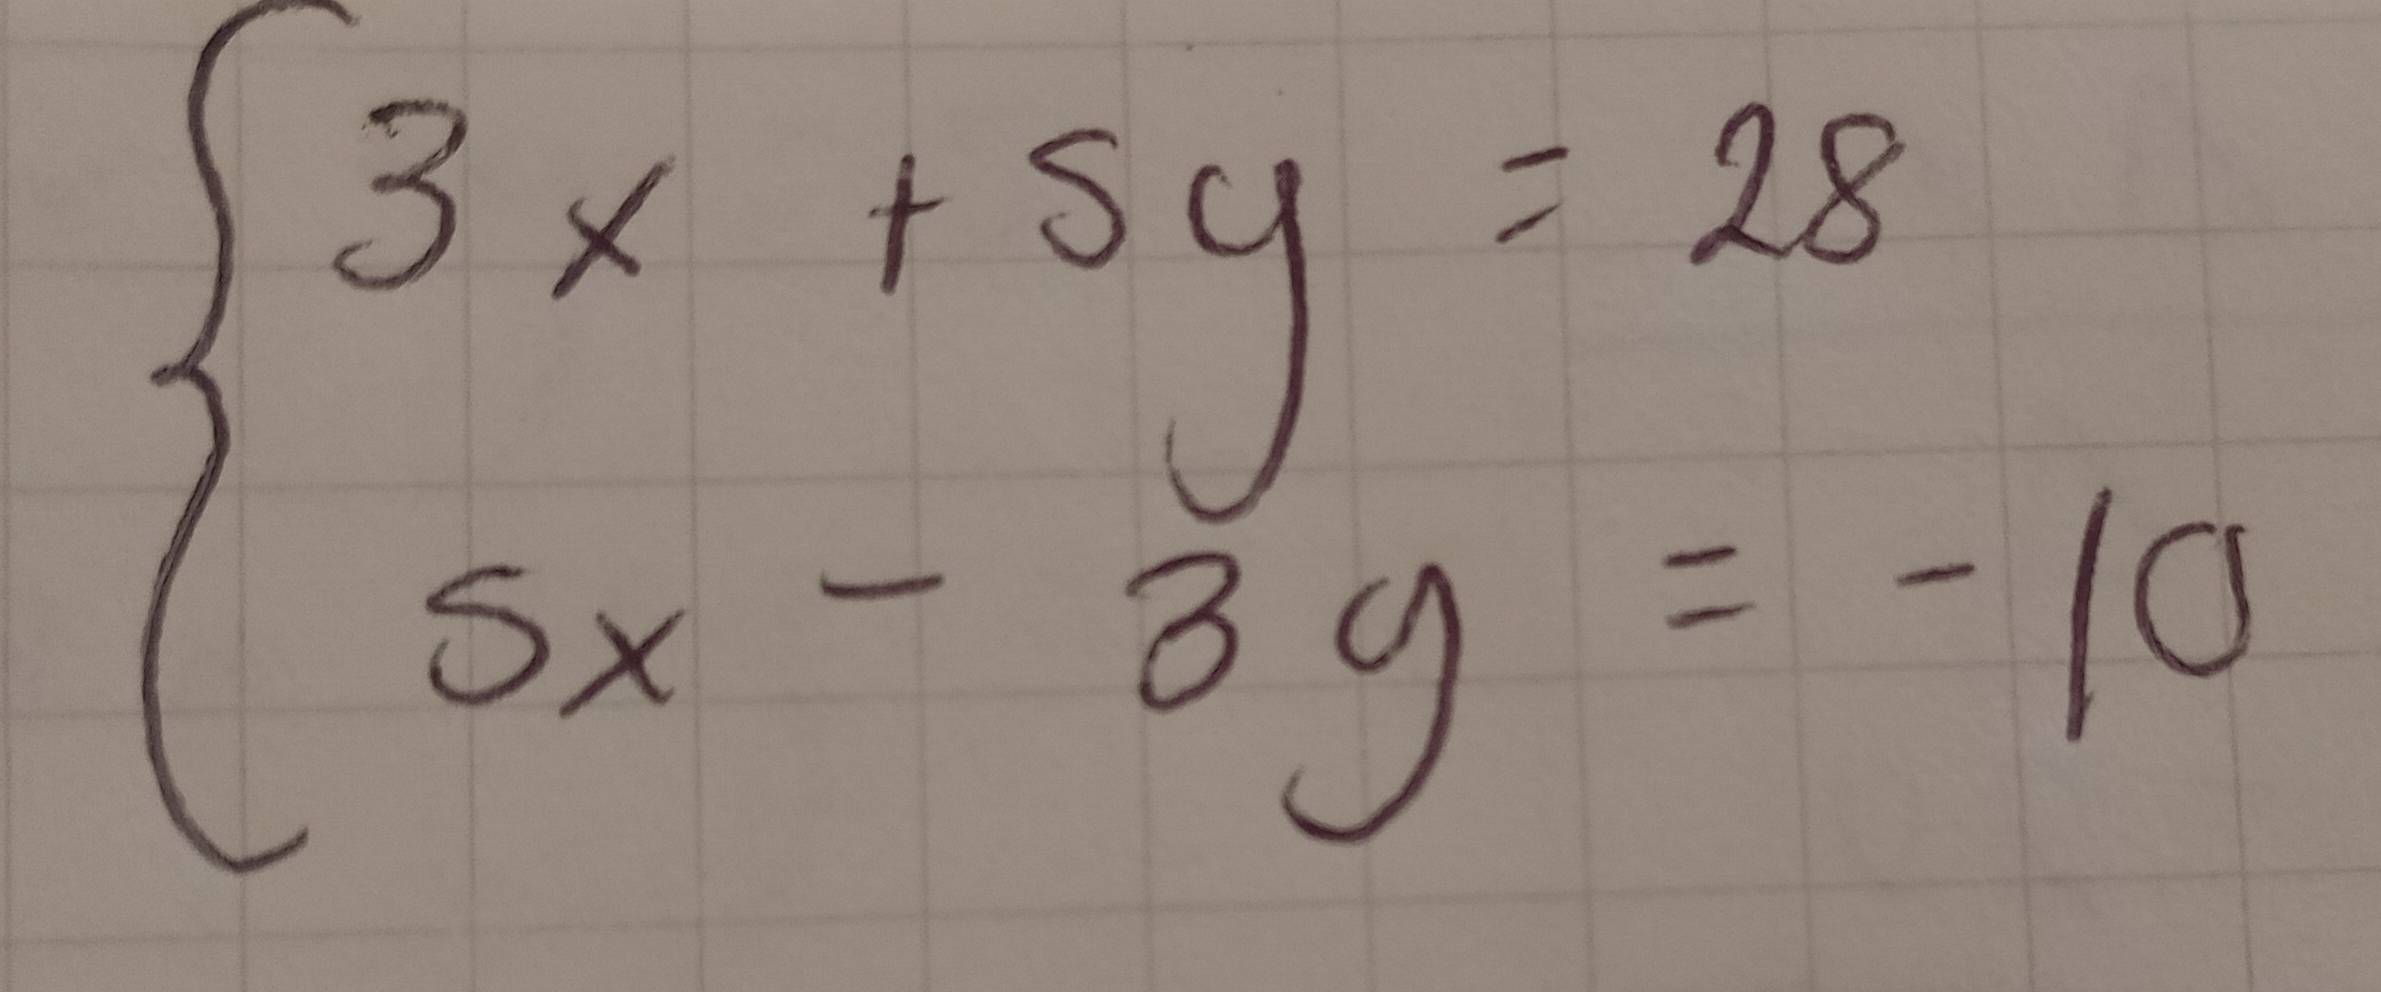 3x + 5y = 28
5x - 3y = -10